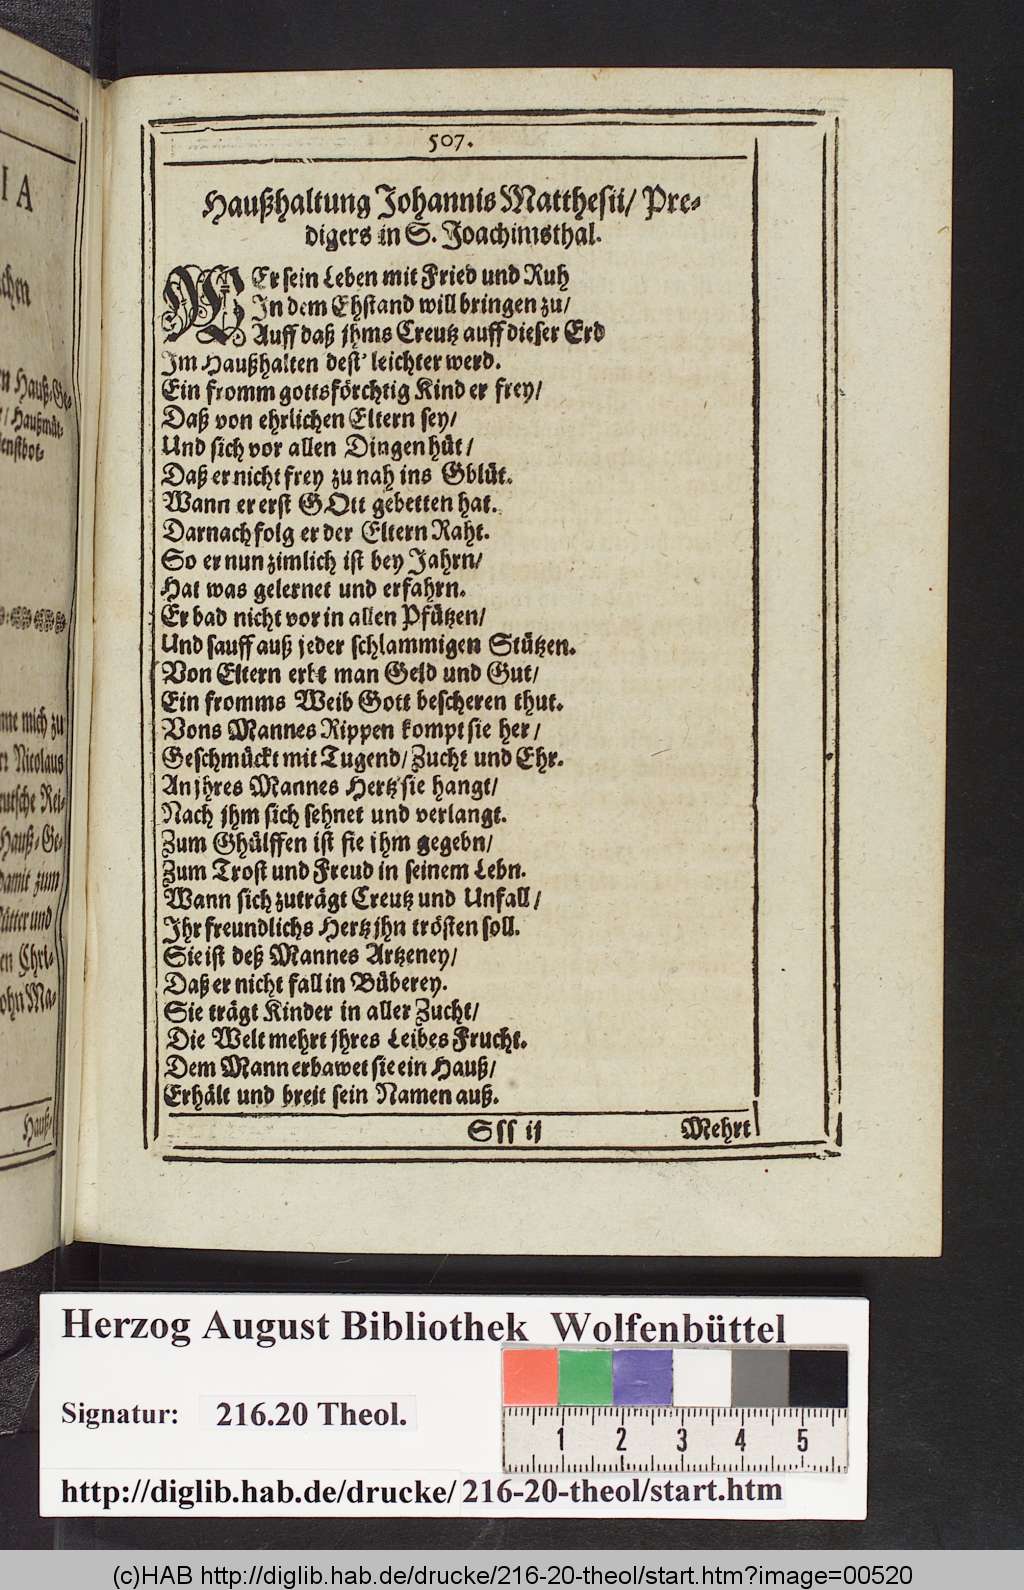 IA
chen
en Hauß-Ge-
r/ Haußmüt-
ienstbot-
me mich zu
Nicolaus
eutsche Rei-
Hauß-Ge-
damit zum
Vätter und
en Chri-
John Ma-
Hauß-
507.
Haußhaltung Johannis Matthesii/ Pre-
digers in S. Joachimsthal.
WEr sein Leben mit Fried und Ruh
In dem Ehstand will bringen zu/
Auff daß jhms Creutz auff dieser Erd
Im Haußhalten dest' leichter werd.
Ein fromm gottsförchtig Kind er frey/
Daß von ehrlichen Eltern sey/
Und sich vor allen Dingen hüt/
Daß er nicht frey zu nah ins Gblüt.
Wann er erst GOtt gebetten hat.
Darnach folg er der Eltern Raht.
So er nun zimlich ist bey Jahrn/
Hat was gelernet und erfahrn.
Er bad nicht vor in allen Pfützen/
Und sauff auß jeder schlammigen Stützen.
Von Eltern erbt man Geld und Gut/
Ein fromms Weib Gott bescheren thut.
Vons Mannes Rippen kompt sie her/
Geschmückt mit Tugend/ Zucht und Ehr.
An jhres Mannes Hertz sie hangt/
Nach jhm sich sehnet und verlangt.
Zum Ghülffen ist sie jhm gegebn/
Zum Trost und Freud in seinem Lebn.
Wann sich zuträgt Creutz und Unfall/
Ihr freundlichs Hertz jhn trösten soll.
Sie ist deß Mannes Artzeney/
Daß er nicht fall in Büberey.
Sie trägt Kinder in aller Zucht/
Die Welt mehrt jhres Leibes Frucht.
Dem Mann erbawet sie ein Hauß/
Erhält und breit sein Namen auß.
Sss ij Mehrt
Herzog August Bibliothek Wolfenbüttel
Signatur: 216.20 Theol.
1 2 3 4 5
http://diglib.hab.de/drucke/216-20-theol/start.htm
(c)HAB http://diglib.hab.de/drucke/216-20-theol/start.htm?image=00520